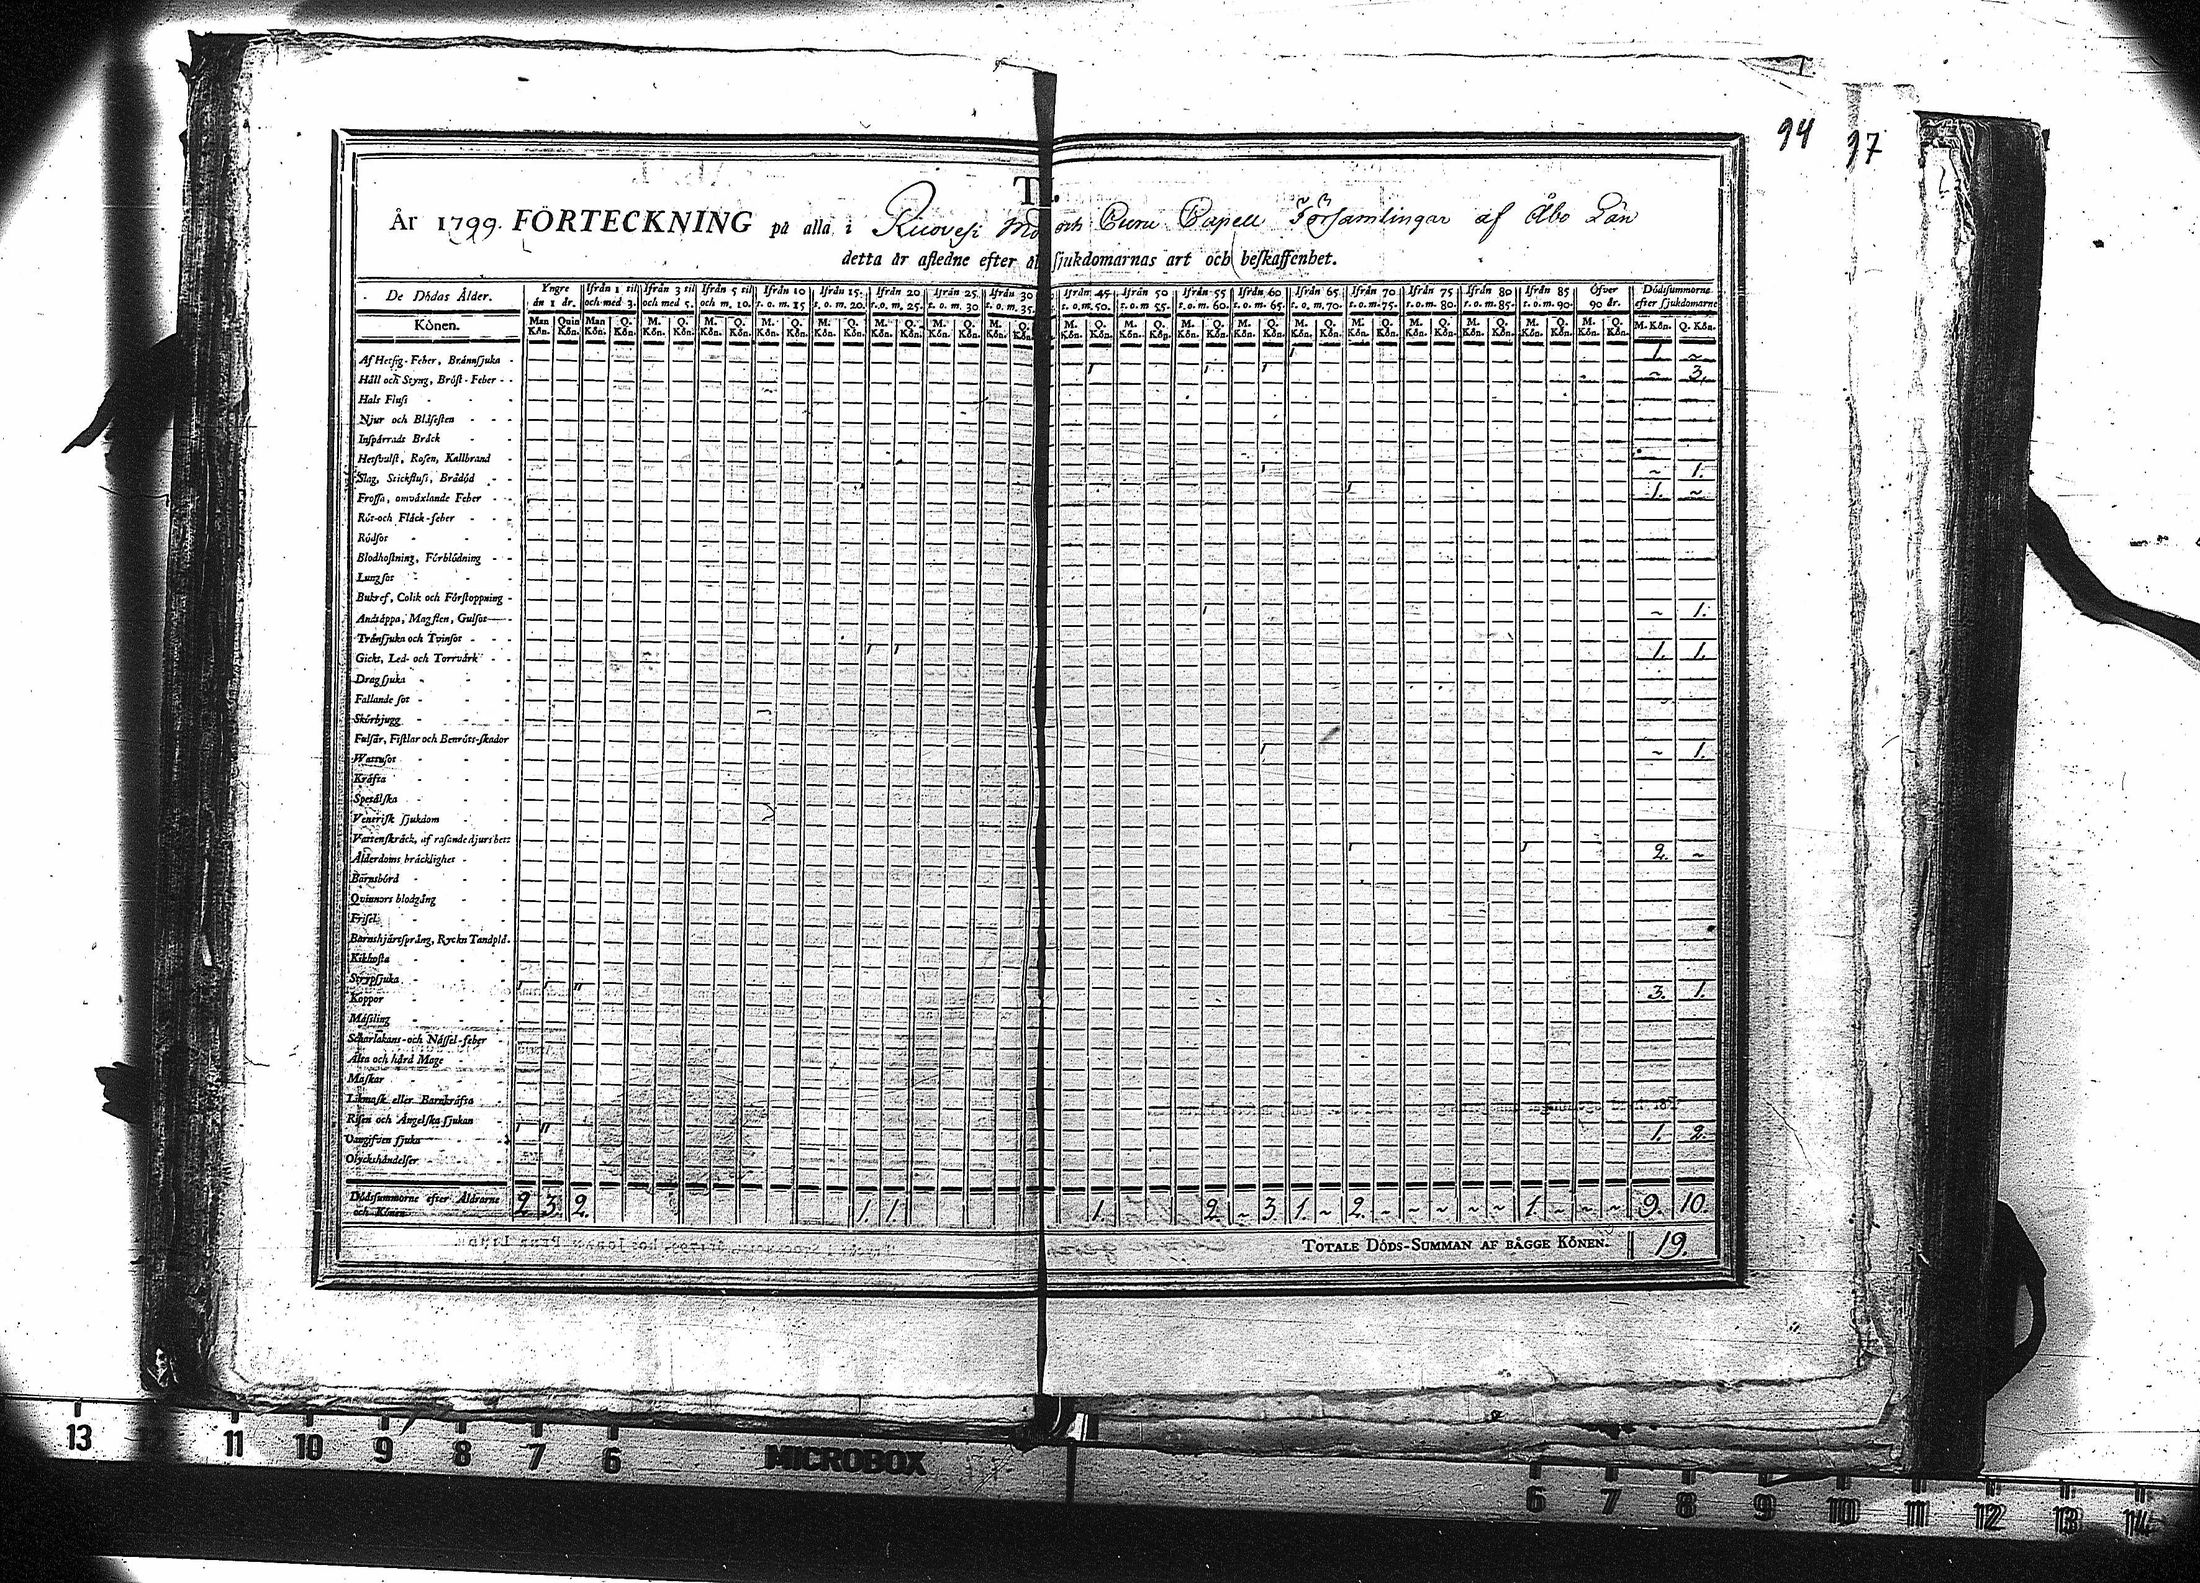 94 97
T
År 1799. FÖRTECKNING på alla i Ruovesi Mo och Curu Capell Församlingar af Åbo Län
detta år afledne efter al sjukdomarnas art och beskaffenhet.
De Dödas Ålder. Yngre än 1 år. Ifrån 1 til och med 3. Ifrån 3 til och med 5. Ifrån 5 til och m. 10. Ifrån 10 t. o. m. 15 Ifrån 15. t. o. m. 20. Ifrån 20 t. o. m. 25. Ifrån 25. t. o. m. 30 Ifrån 30 t. o. m. 35. Ifrån 45 t. o. m. 50. Ifrån 50 t. o. m. 55. Ifrån 55 t. o. m. 60. Ifrån 60 t. o. m. 65. Ifrån 65 t. o. m. 70. Ifrån 70 t. o. m. 75. Ifrån 75 t. o. m. 80. Ifrån 80 t. o. m. 85. Ifrån 85 t. o. m. 90. Öfver 90 år. Dödssummorne efter sjukdomarne
Könen. Man Kön. Quin Kön. Man Kön. Q. Kön. M. Kön. Q. Kön. M. Kön. Q. Kön. M. Kön. Q. Kön. M. Kön. Q. Kön. M. Kön. Q. Kön. M. Kön. Q. Kön. M. Kön. Q. Kön. M. Kön. Q. Kön. M. Kön. Q. Kön. M. Kön. Q. Kön. M. Kön. Q. Kön. M. Kön. Q. Kön. M. Kön. Q. Kön. M. Kön. Q. Kön. M. Kön. Q. Kön. M. Kön. Q. Kön. M. Kön. Q. Kön. M. Kön. Q. Kön.
Af Hetsig-Feber, Brännsjuka 1 1. ~
Håll och Styng, Bröst-Feber 1 1 1 ~ 3.
Hals Fluss
Njur och Blåsesten
Inspärradt Bråck
Hetsvulst, Rosen, Kallbrand
Slag, Stickfluss, Brådöd 1 ~ 1.
Frossa, omväxlande Feber 1 1. ~
Röt-och Fläck-feber
Rödsot
Blodhostning, Förblödning
Lungsot
Bukref, Colik och Förstoppning
Andtäppa, Magsten, Gulsot 1 ~ 1.
Trånsjuka och Tvinsot
Gickt, Led- och Torrvärk 1 1 1. 1.
Dragsjuka
Fallande sot
Skörbjugg
Fulsår, Fistlar och Benröts-skador
Wattusot 1 ~ 1.
Kräfta
Spetälska
Venerisk sjukdom
Vattenskräck, af rasande djurs bett
Ålderdoms bräcklighet 1 1 2. ~
Barnsbörd
Quinnors blodgång
Frisel
Barnshjärtsprång, Ryckn Tandplå.
Kikhosta
Strypsjuka
Koppor 1 1 11 3. 1.
Mässling
Scharlakans-och Nässel-feber
Älta och hård Mage
Maskar
Likmask eller Barnkräfta
Risen och Ängelska sjukan
Oangifven sjuka 1 11 1. 2.
Olyckshändelser
Dödssummorne efter Åldrarne och Könen 2 3 2. 1. 1. 1. 2 ~ 3. 1. ~ 2. ~ ~ ~ ~ ~ 1. ~ ~ ~ 9. 10.
TOTALE DÖDS-SUMMAN AF BÄGGE KÖNEN. 19.
13 11 10 9 8 7 6 MICROBOX 6 7 8 9 10 11 12 13 14